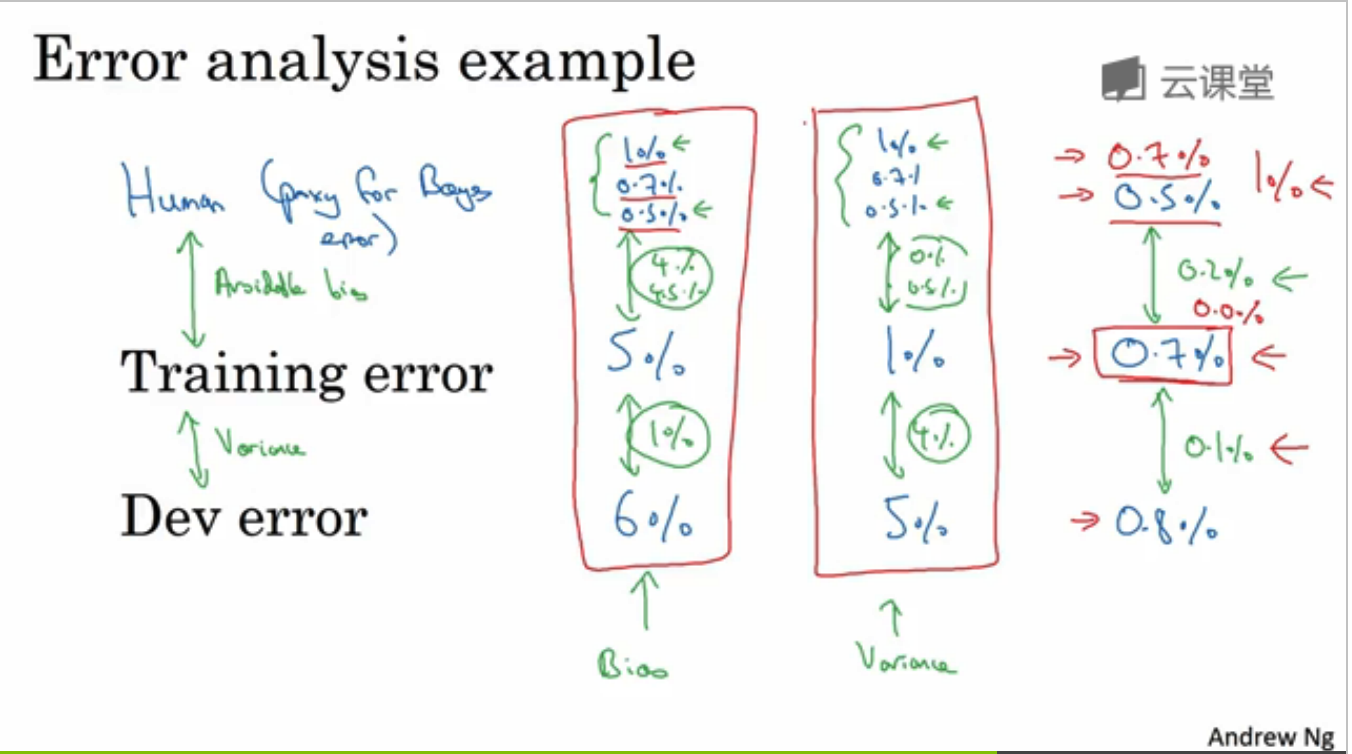 Error analysis example
云课堂
Human (proxy for Bayes
error)
Avoidable bias
Training error
Variance
Dev error
1%
0.7%
0.5%
4%
4.5%
5%
1%
6%
Bias
1%
0.7%
0.5%
0%
0.5%
1%
4%
5%
Variance
0.7%
1%
0.5%
0.2%
0.0%
0.7%
0.1%
0.8%
Andrew Ng